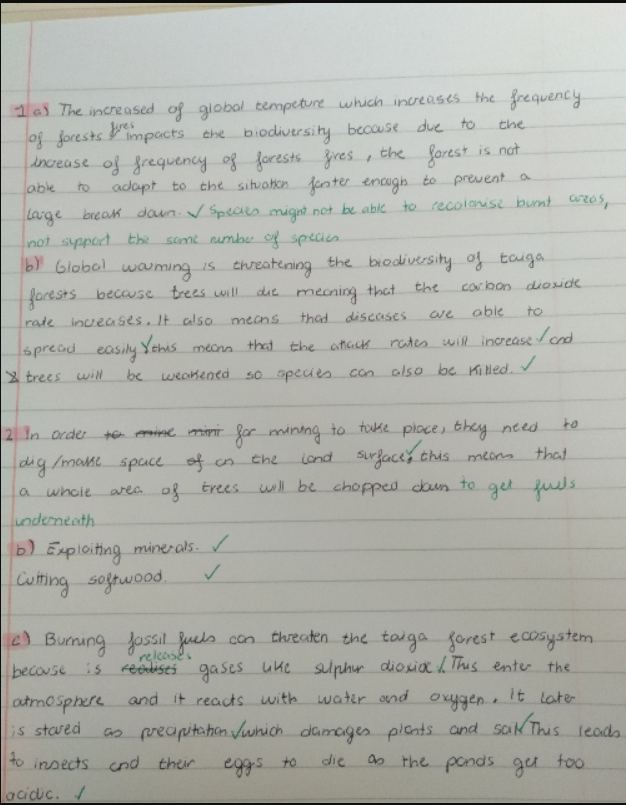 1 a) The increased of global tempeture which increases the frequency
of forests fires impacts the biodiversity because due to the
increase of frequency of forests fires, the forest is not
able to adapt to the situation faster enough to prevent a
large break down. ✓ Species might not be able to recolonise burnt areas,
not support the same number of species
b) Global warming is threatening the biodiversity of taiga
forests because trees will die meaning that the carbon dioxide
rate increases. It also means that diseases are able to
spread easily ✓ this means that the attack rates will increase ✓ and
trees will be weakened so species can also be killed. ✓
2 In order to mine mini for mining to take place, they need to
dig/make space of on the land surface, ✓ this means that
a whole area of trees will be chopped down to get fuels
underneath
b) Exploiting minerals. ✓
Cutting softwood. ✓
c) Burning fossil fuels can threaten the taiga forest ecosystem
because is realises releases gases like sulphur dioxide ✓. This enter the
atmosphere and it reacts with water and oxygen. It later
is stored as precipitation ✓ which damages plants and soil ✓ This leads
to insects and their eggs to die as the ponds get too
acidic. ✓